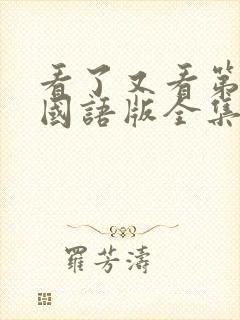 看了又看第
國語版全集
羅芳濤